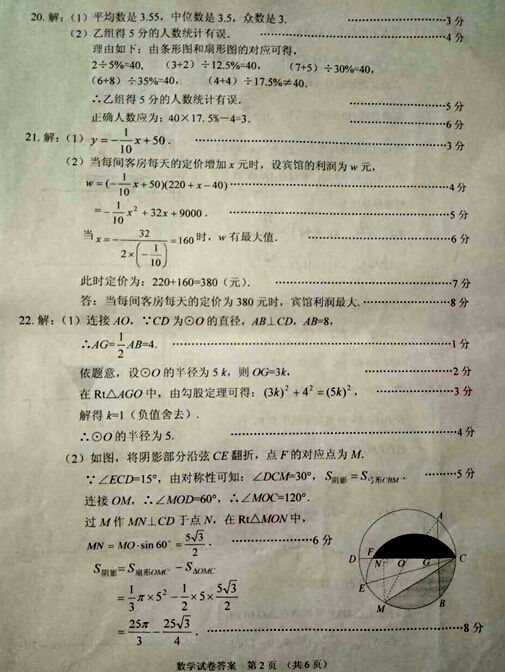 20. 解：（1）平均数是 3.55，中位数是 3.5，众数是 3. ……………………3 分
（2）乙组得 5 分的人数统计有误. ……………………4 分
理由如下：由条形图和扇形图的对应可得，
2÷5%=40， （3+2）÷12.5%=40， （7+5）÷30%=40，
（6+8）÷35%=40， （4+4）÷17.5%≠40.
∴乙组得 5 分的人数统计有误. ……………………5 分
正确人数应为：40×17.5%−4=3. ……………………6 分
21. 解：（1）y=−1/10 x+50. ……………………3 分
（2）当每间客房每天的定价增加 x 元时，设宾馆的利润为 w 元，
w=(−1/10 x+50)(220+x−40)……………………4 分
=−1/10 x²+32x+9000. ……………………5 分
当 x=−32/(2×(−1/10))=160 时，w 有最大值. ……………………6 分
此时定价为：220+160=380（元）. ……………………7 分
答：当每间客房每天的定价为 380 元时，宾馆利润最大. ……………………8 分
22. 解：（1）连接 AO，∵CD 为⊙O 的直径，AB⊥CD，AB=8，
∴AG=1/2 AB=4. ……………………1 分
依题意，设⊙O 的半径为 5 k，则 OG=3k， ……………………2 分
在 Rt△AGO 中，由勾股定理可得：(3k)²+4²=(5k)²， ……………………3 分
解得 k=1（负值舍去）.
∴⊙O 的半径为 5. ……………………4 分
（2）如图，将阴影部分沿弦 CE 翻折，点 F 的对应点为 M.
∵∠ECD=15°，由对称性可知：∠DCM=30°，S阴影=S弓形CBM. ……5 分
连接 OM，∴∠MOD=60°，∴∠MOC=120°.
过 M 作 MN⊥CD 于点 N，在 Rt△MON 中，
MN=MO·sin 60°=5√3/2. ……………6 分
S阴影=S扇形OMC−S△OMC
=1/3 π×5²−1/2×5×5√3/2
=25π/3−25√3/4. ……………………8 分
A
D F N O G C
E
M B
数学试卷答案 第 2 页 （共 6 页）